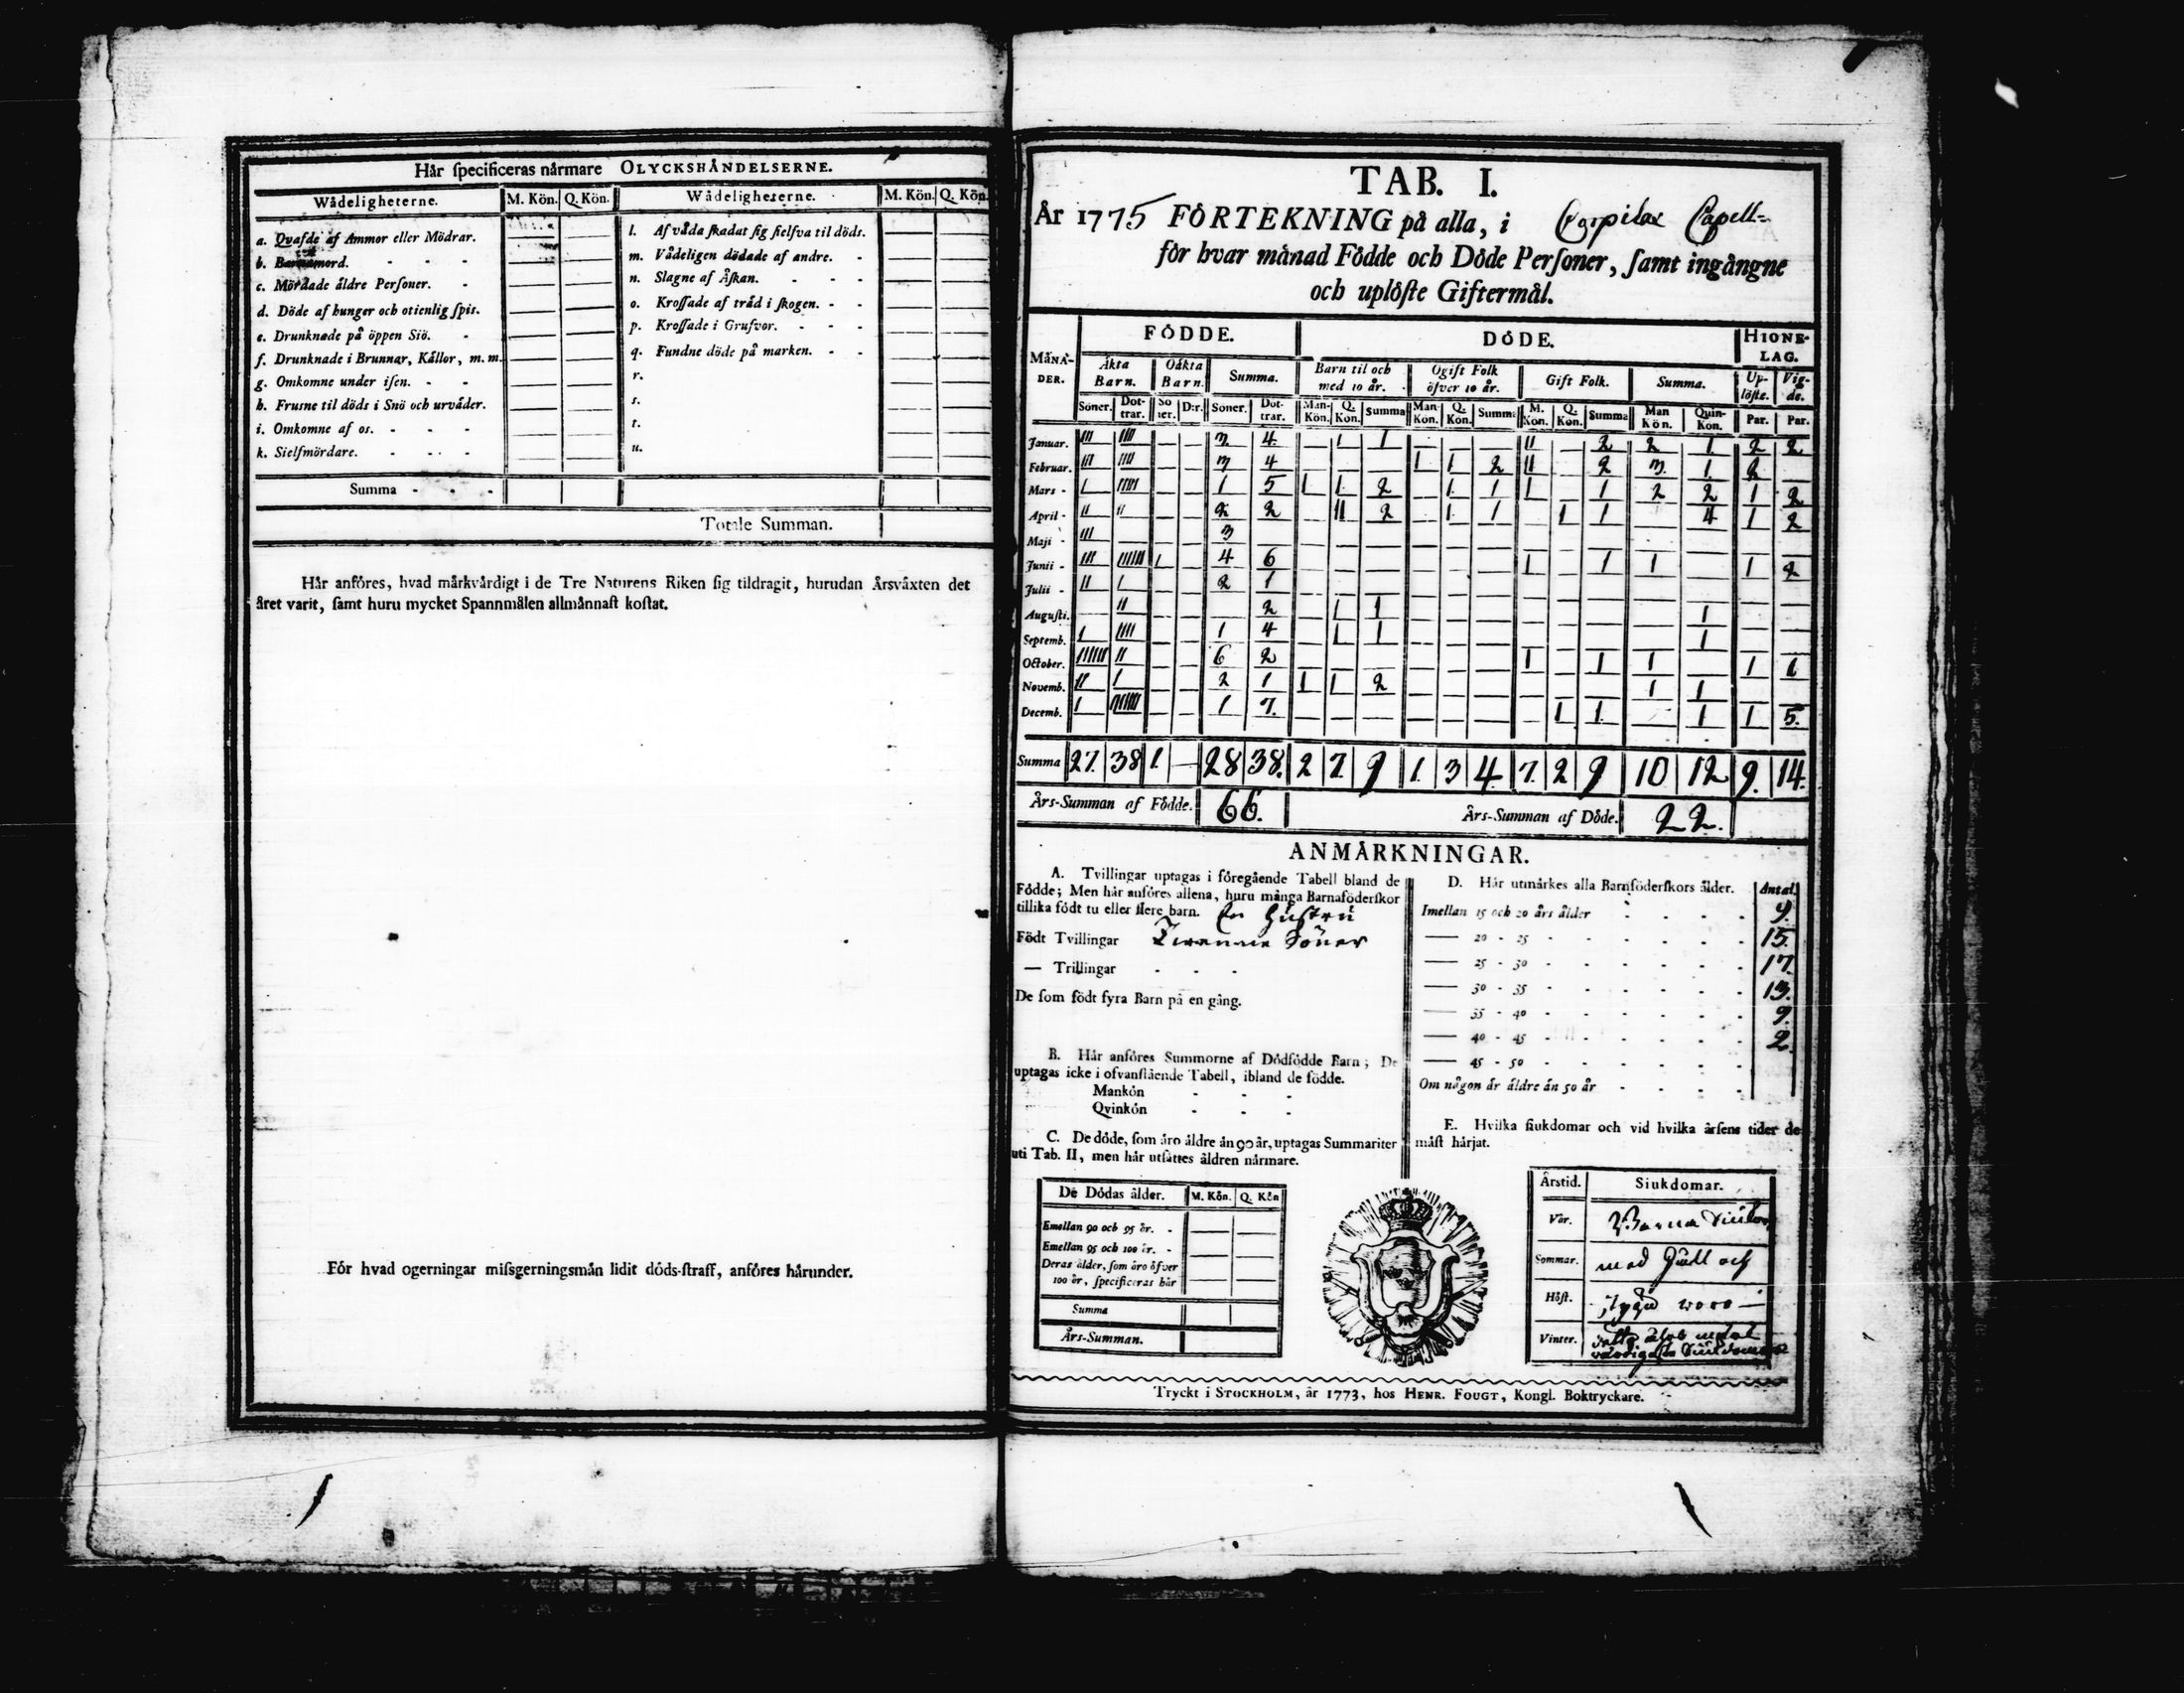 Hår ſpecificeras nårmare OLYCKSHÅNDELSERNE.
Wådeligheterne. M. Kön. Q. Kön. Wådeligheterne. M. Kön. Q. Kön.
a. Qvafde af Ammor eller Mödrar. — — l. Af våda ſkadat ſig ſielfva til döds. — —
b. Barnamord. - - - — — m. Vådeligen dödade af andre. - — —
c. Mördade åldre Perſoner. - — — n. Slagne af Åſkan. - - - — —
d. Döde af hunger och otienlig ſpis. — — o. Kroſſade af tråd i ſkogen. - - — —
e. Drunknade på öppen Siö. - — — p. Kroſſade i Grufvor. - - - — —
f. Drunknade i Brunnar, Kållor, m. m. — — q. Fundne döde på marken. - - — —
g. Omkomne under iſen. - - — — r. — —
h. Frusne til döds i Snö och urvåder. — — s. — —
i. Omkomne af os. - - - — — t. — —
k. Sielfmördare. - - - — — u. — —
Summa - - -
Totale Summan.
Hår anföres, hvad mårkvårdigt i de Tre Naturens Riken ſig tildragit, hurudan Årsvåxten det
året varit, ſamt huru mycket Spannmålen allmånnaſt koſtat.
För hvad ogerningar miſsgerningsmån lidit döds-ſtraff, anföres hårunder.
TAB. I.
År 1775 FÖRTEKNING på alla, i Capell-
för hvar månad Födde och Döde Perſoner, ſamt ingångne
och uplöſte Giftermål.
MÅNADER. FÖDDE. DÖDE. HIONELAG.
Åkta Barn. Oåkta Barn. Summa. Barn til och med 10 år. Ogift Folk öfver 10 år. Gift Folk. Summa. Uplöſte. Vigde.
Söner. Dottrar. Söner. D:r. Söner. Dottrar. Man-Kön. Q. Kön. Summa Man-Kön. Q. Kön. Summa M. Kön. Q. Kön. Summa Man Kön. Quin-Kön. Par. Par.
Januar. III IIII — — 3 4 — 1 1 — — — II — 2 2 1 2 2
Februar. III IIII — — 3 4 — — — 1 1 2 II — 2 3 1 2 —
Mars - I IIIII — — 1 5 1 1 2 — 1 1 1 — 1 2 2 1 2
April - II II — — 2 2 — II 2 — 1 1 — 1 1 — 4 1 2
Maji - III — — — 3 — — — — — — — — — — — — — —
Junii - III IIIIII I — 4 6 — — — — — — 1 — 1 1 — 1 2
Julii - II I — — 2 1 — — — — — — — — — — — — —
Auguſti. — II — — — 2 — 1 1 — — — — — — — 1 — —
Septemb. I IIII — — 1 4 — 1 1 — — — — — — — 1 — —
October. IIIIII II — — 6 2 — — — — — — 1 — 1 1 — 1 1
Novemb. II I — — 2 1 1 1 2 — — — — — — 1 1 — —
Decemb. I IIIIIII — — 1 7. — — — — — — — 1 1 — 1 1 5.
Summa 27. 38 1. — 28 38. 2 7. 9 1. 3 4. 7. 2 9 10 12 9. 14.
Års-Summan af Födde. 66. Års-Summan af Döde. 22.
ANMÅRKNINGAR.
A. Tvillingar uptagas i föregående Tabell bland de
Födde; Men hår anföres allena, huru många Barnaföderſkor
tillika födt tu eller flere barn. En Hustru
Födt Tvillingar Twenne Söner
— Trillingar - - -
De ſom födt fyra Barn på en gång.
B. Hår anföres Summorne af Dödfödde Barn; De
uptagas icke i ofvanſtående Tabell, ibland de födde.
Mankön - - -
Qvinkön - - -
C. De döde, ſom åro åldre ån 90 år, uptagas Summariter
uti Tab. II, men hår utſåttes åldren nårmare.
De Dödas ålder. M. Kön. Q. Kön
Emellan 90 och 95 år. - — —
Emellan 95 och 100 år. - — —
Deras ålder, ſom åro öfver
100 år, ſpecificeras hår — —
Summa
Års-Summan.
D. Hår utmårkes alla Barnföderſkors ålder. Antal.
Imellan 15 och 20 års ålder - - - - 9.
— 20 - 25 - - - - - - 15.
— 25 - 30 - - - - - - 17.
— 30 - 35 - - - - - - 13.
— 35 - 40 - - - - - - 9.
— 40 - 45 - - - - - - 2.
— 45 - 50 - - - - - -
Om någon år åldre ån 50 år - - - -
E. Hvilka ſiukdomar och vid hvilka årſens tider de
måſt hårjat.
Årstid. Siukdomar.
Vår. Barna
Sommar. med och
Höſt. woro
Vinter.
Tryckt i STOCKHOLM, år 1773, hos HENR. FOUGT, Kongl. Boktryckare.